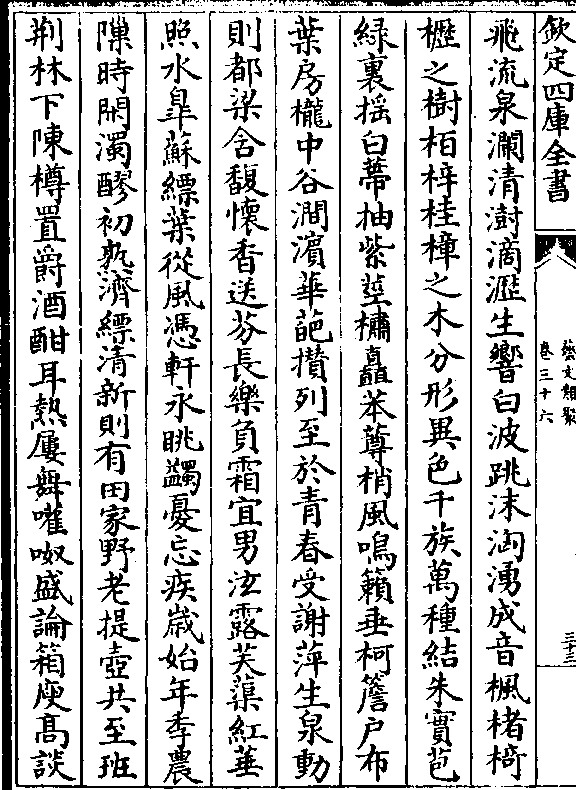 欽定四庫全書
藝文類聚
卷三十六
三十三
飛流泉瀾清澍滴瀝生響白波跳沫洶湧成音楓楮椅
櫪之樹栢梓桂樟之木分形異色千族萬種結朱實苞
緑裏揺白蔕抽紫莖橚矗苯䔿梢風鳴籟垂柯簷户布
葉房櫳中谷澗濵華葩攅列至於青春受謝萍生泉動
則都梁含馥懷香送芬長樂負霜宜男泫露芙蕖紅華
照水臯蘇縹葉從風憑軒永眺蠲憂忘疾歳始年季農
隟時閒濁醪初熟濟縹清新則有田家野老提壺共至班
荆林下陳樽置爵酒酣耳熱屢舞嚾呶盛論箱庾高談